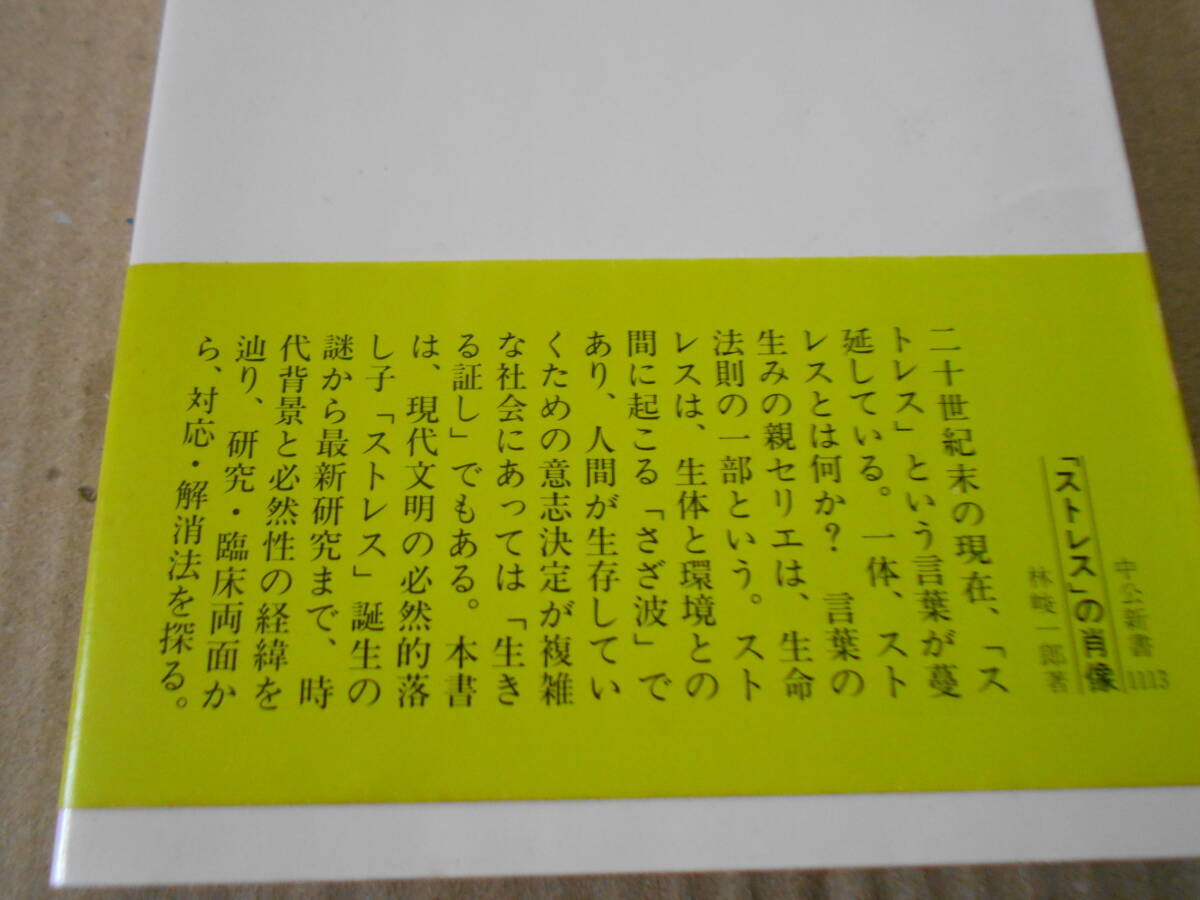 中公新書 1113
「ストレス」の肖像
林峻一郎著
二十世紀末の現在、「ス
トレス」という言葉が蔓
延している。一体、スト
レスとは何か? 言葉の
生みの親セリエは、生命
法則の一部という。スト
レスは、生体と環境との
間に起こる「さざ波」で
あり、人間が生存してい
くための意志決定が複雑
な社会にあっては「生き
る証し」でもある。本書
は、現代文明の必然的落
し子「ストレス」誕生の
謎から最新研究まで、時
代背景と必然性の経緯を
辿り、研究・臨床両面か
ら、対応・解消法を探る。